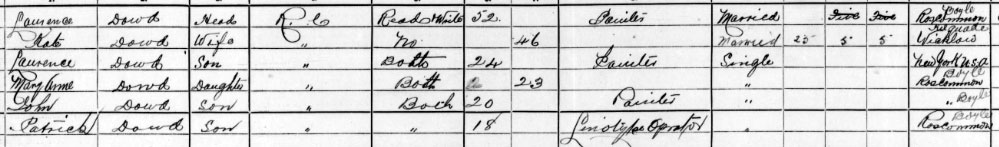 Laurence Dowd Head R. C Read & Write 52 Painter Married Five Five Boyle Roscommon
Kate Dowd Wife " No 46 Married 25 5 5 Wicklow
Laurence Dowd Son " Both 24 Painter Single New York U.S.A
Mary Anne Dowd Daughter " Both 23 " Boyle Roscommon
John Dowd Son " Both 20 Painter " " Boyle
Patrick Dowd Son " " 18 Linotype Oprator " Boyle Roscommon